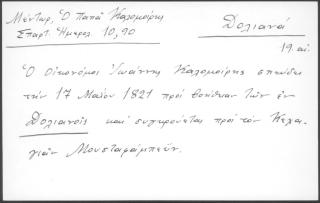 Μέντωρ, Ὁ Παπᾶ Καλομοίρης
Σπαρτ. Ἡμερολ. 10,90
Δολιανά
19 αἰ.
Ὁ Οἰκονόμος Ἰωάννης Καλομοίρης σπεύδει
τήν 17 Μαΐου 1821 πρός βοήθειαν τῶν ἐν
Δολιανοῖς καί συγκρούεται πρός τόν Κεχα-
γιᾶν Μουσταφάμπεην.